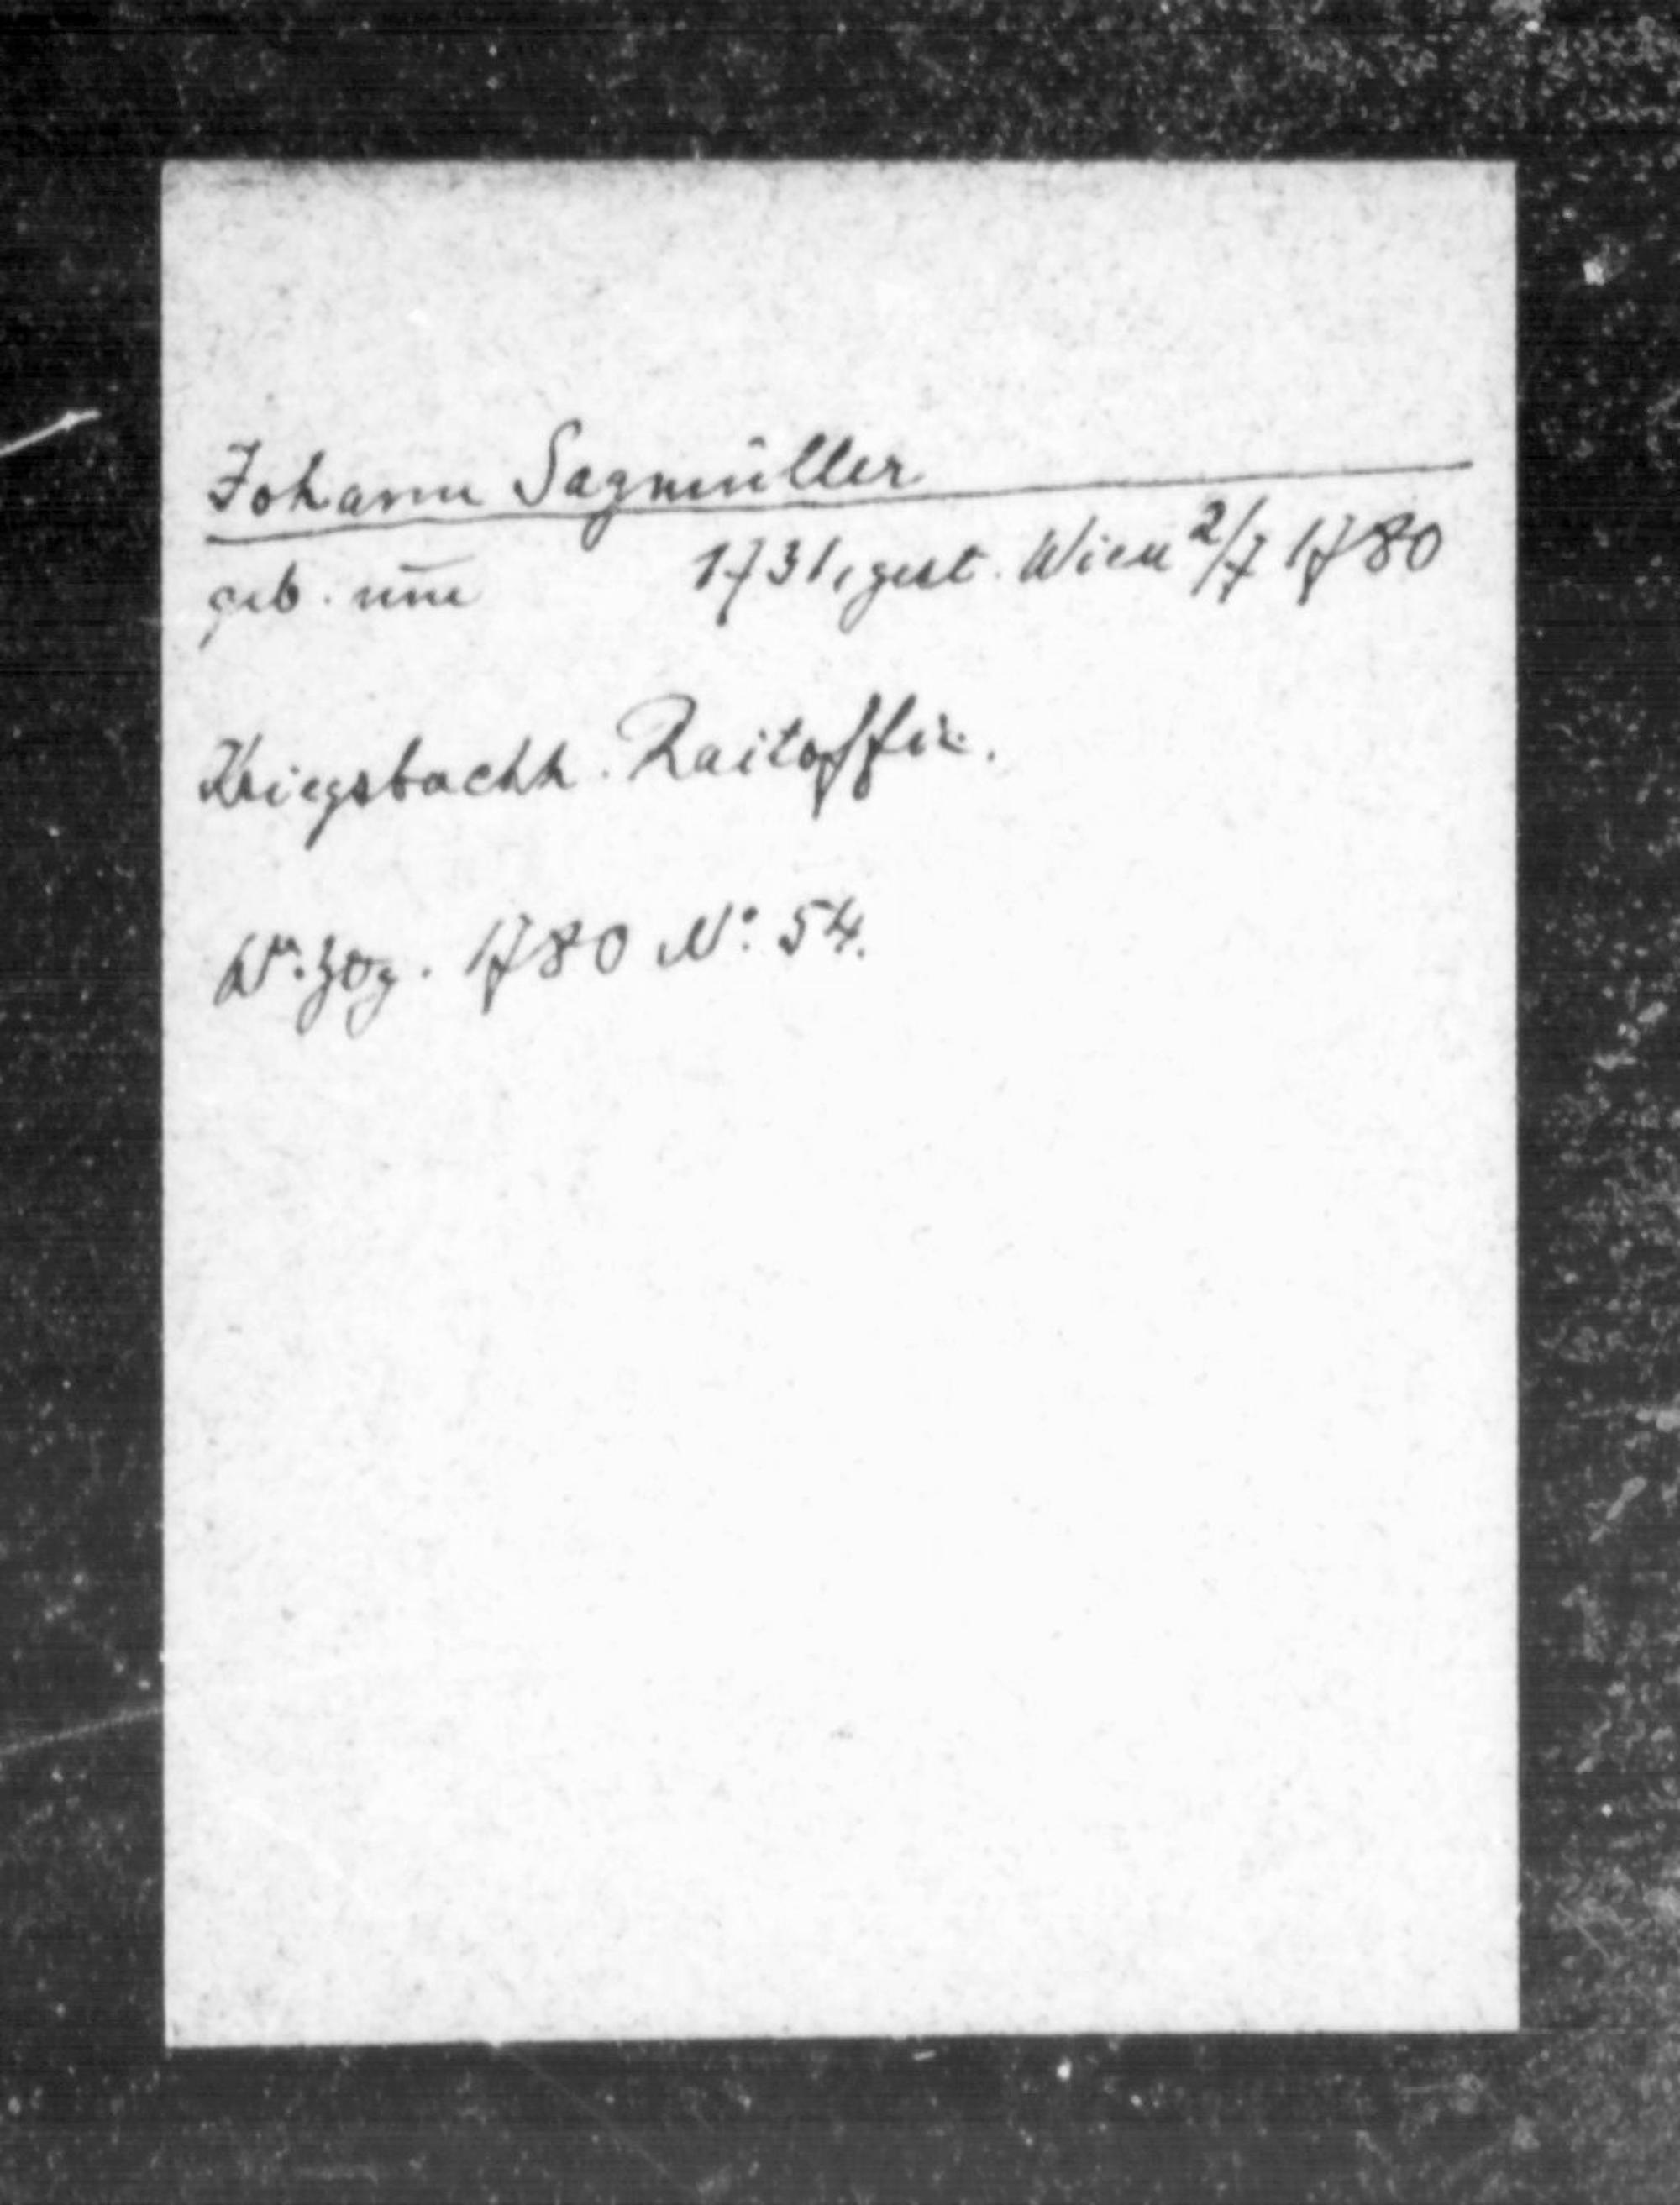 Johann Sagmüller
geb. um̅ 1731, gest. Wien 2/7 1780
Kriegsbuchh. Raitoffiz.
Wr. Ztg. 1780 No. 54.